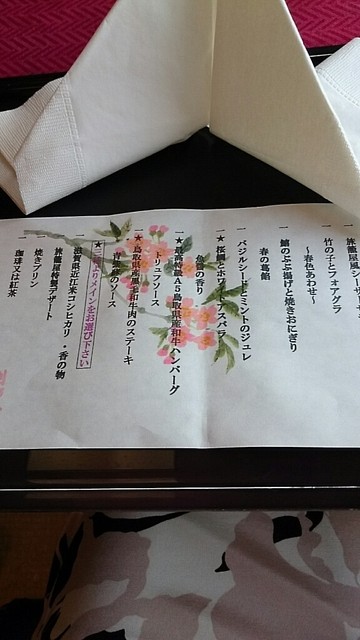 一 旅籠屋風シーザーサ
一 竹の子とフォアグラ
～春色あわせ～
一 鰆のぶぶ揚げと焼きおにぎり
春の葛餡
一 バジルシードとミントのジュレ
一★ 桜鯛とホワイトアスパラ
の香り
一★ 最高等級A5鳥取県産和牛ハンバーグ
トリュフソース
一★ 鳥取県産黒毛和牛肉のステーキ
のソース
★ よりメインをお選び下さい
一 滋賀県近江米コシヒカリ・香の物
一 旅籠屋特製デザート
焼きプリン
一 珈琲又は紅茶